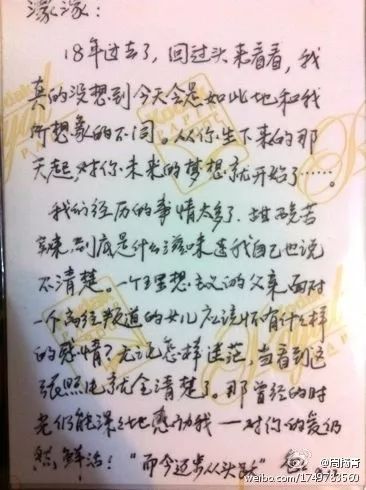 濛濛：
18年过去了，回过头来看看，我
真的没想到今天会是如此地和我
所想象的不同。从你生下来的那
天起，对你未来的梦想就开始了……。
我们经历的事情太多了，甜酸苦
辣，到底是什么滋味连我自己也说
不清楚。一个理想主义的父亲面对
一个离经叛道的女儿应该怀有什么样
的感情？无论怎样迷茫，当看到这
张照片就全清楚了。那曾经的时
光仍能深深地感动我——对你的爱仍
然鲜活！“而今迈步从头越” 爸
Kodak
Royal
PAPER
@周
weibo.com/1749783560